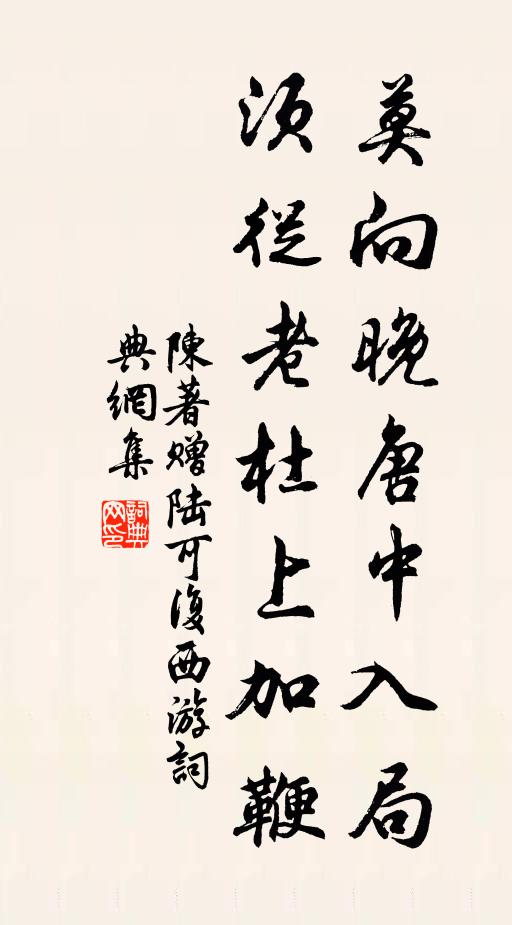 莫向晚唐中入局
須從老杜上加鞭
陳著贈陸可復西游詞
典網集
詞典
网印